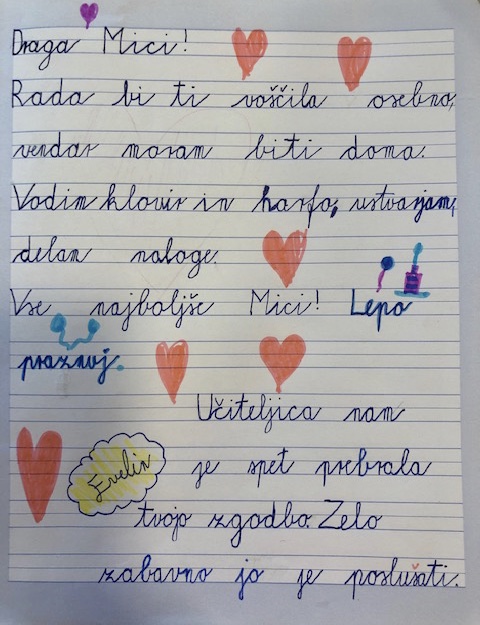 Draga Mici!
Rada bi ti voščila osebno,
vendar moram biti doma.
Vadim klavir in harfo, ustvarjam,
delam naloge.
Vse najboljše Mici! Lepo
praznuj.
Učiteljica nam
Evelin
je spet prebrala
tvojo zgodbo. Zelo
zabavno jo je poslušati.